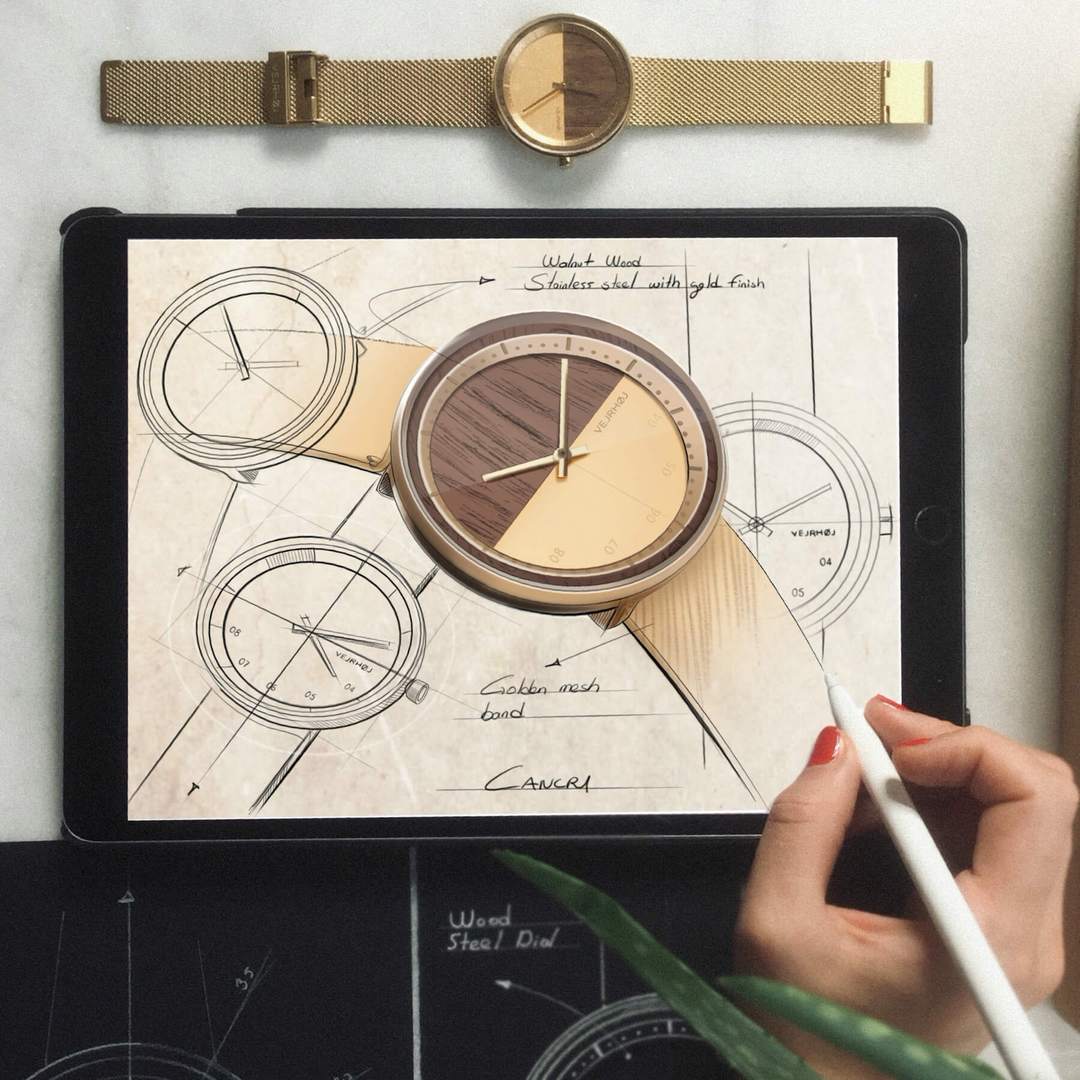 VEJRHØJ
Walnut Wood
Stainless steel with gold finish
VEJRHØJ
04
05
06
07
08
VEJRHØJ
04
05
08
07
06
05
04
VEJRHØJ
Golden mesh
band
CANCRI
Wood
Steel Dial
35